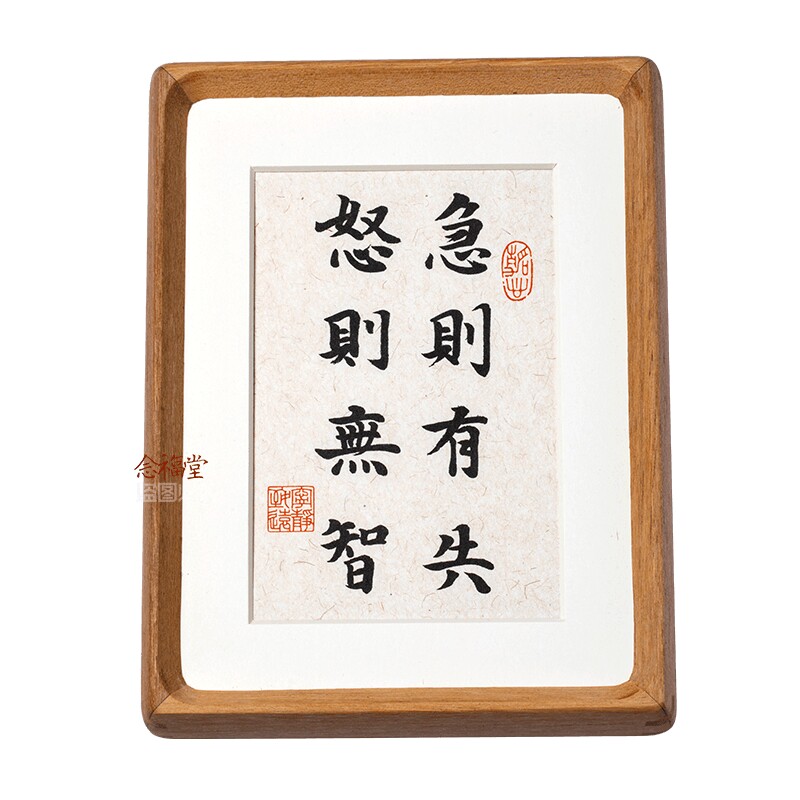 急則有失
怒則無智
寧靜
致遠
念福堂